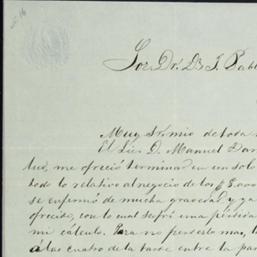 Sor Dr. D. J. Pabl
Muy Sr mio de toda
El Lic. D. Manuel Dar
me ofreció terminar en un solo
todo lo relativo al negocio de los $5.000
se enfermó de mucha gravedad y ya
ofrecido, con lo cual sufrí una perdida
mi cálculo. Para no perderlo mas, l
á las cuatro de la tarde entre la par